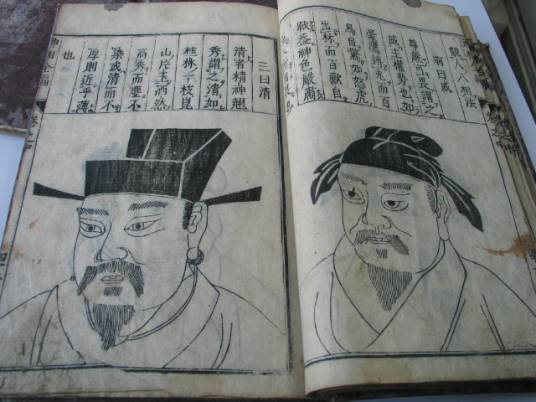 觀人八相法
一曰威
尊嚴可畏謂之
威主權勢也如
豪鷹搏兎而百
鳥自驚如怒虎
出林而百獸自
戰蓋神色嚴肅
三曰清
清者精神翹
秀謂之清如
桂林一枝崑
山片玉洒然
高秀而塵不
染或清而不
厚則近乎薄
也